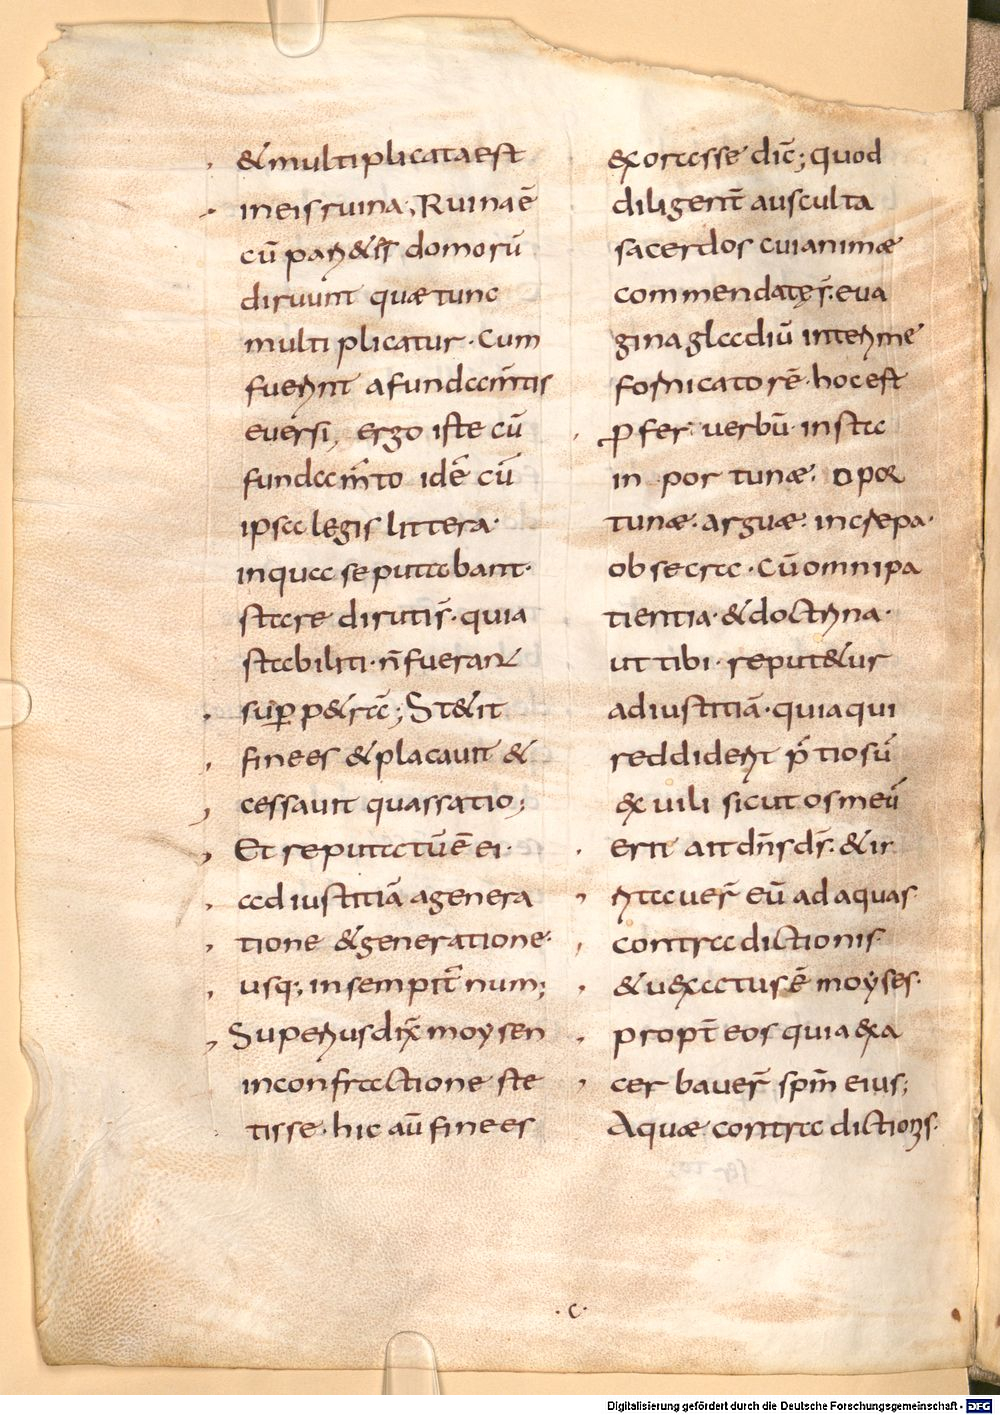 & multiplicata est
in eis ruina; Ruina ē
cū pari&ēs domorū
diruunt quae tunc
multiplicatur· Cum
fuerint a fundam̄tis
eversi, ergo iste cū
fundam̄to idē cū
ipsa legis littera·
in qua se putabant·
stare dirutis̄· quia
stabiliti· n̄ fuerant
sup̱ p&rā; St&it
finees & placavit &
cessavit quassatio;
Et reputatū ē ei·
ad iustitiā a genera
tione & generatione·
usq; in sempit̄num;
Superius dix̄ moysen
in confractione ste
tisse· hic aū finees
exorasse dic̄; quod
diligent̄ ausculta
sacerdos cui animae
commendatę s̄· eva
gina gladiū inter me
fornicatorē· hoc est
ꝓfer verbū· insta
in portunae· opor
tunae· arguae· increpa·
obsecra· Cū omni pa
tientia· & doctrina·
ut tibi· reput&ur
ad iustitiā· quia qui
reddiderit p̄tiosū
ex uili sicut os meū
erit ait dn̄s ds̄· & ir
ritauer̄ eū ad aquas·
contradictionis·
& uexatus ē moyses·
propt̄ eos quia exa
cerbauer̄ sp̄m eius;
Aquae contradictionis·
·c·
Digitalisierung gefördert durch die Deutsche Forschungsgemeinschaft - DFG